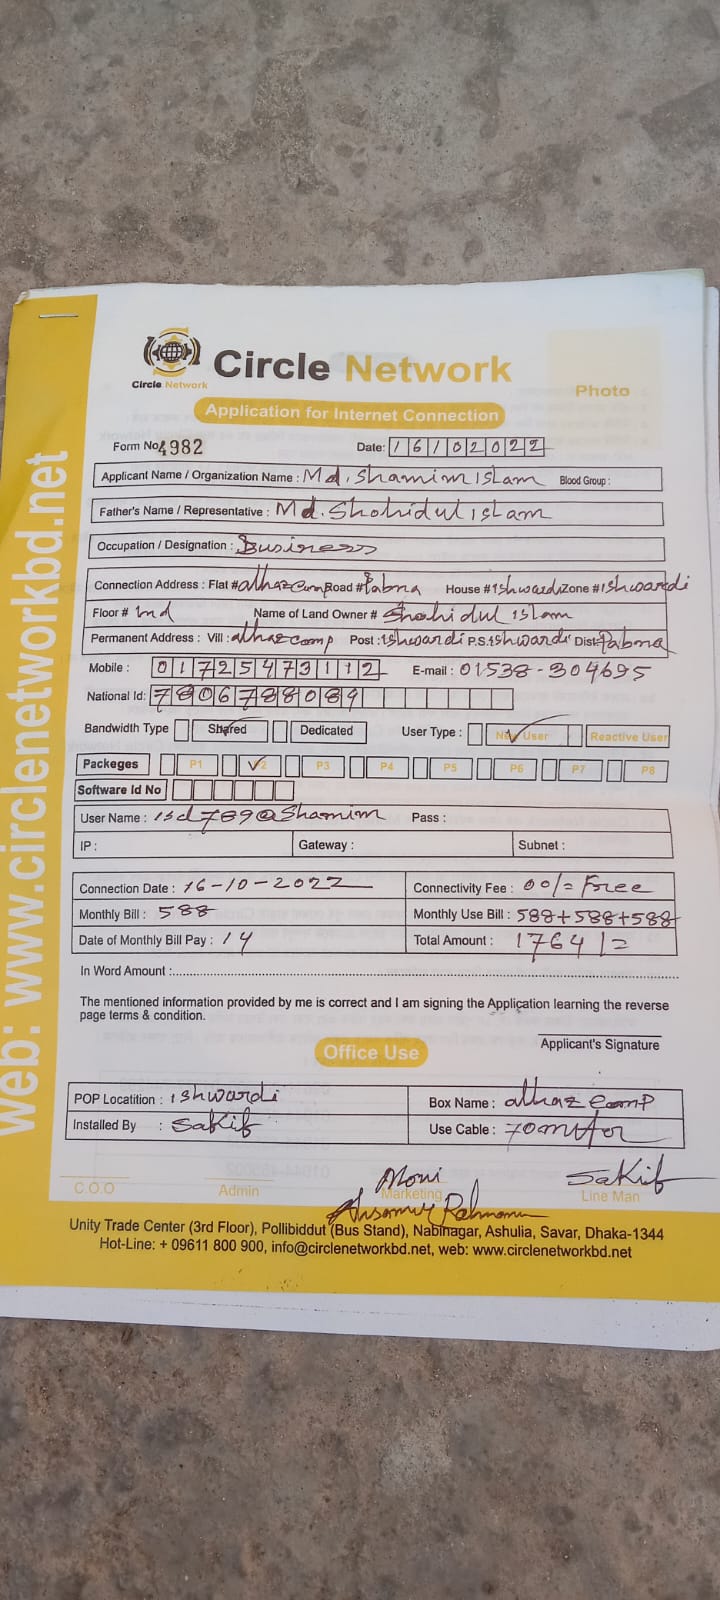 Circle Network
Circle Network
Photo
Application for Internet Connection
Form No. 4982 Date: 16102022
Applicant Name / Organization Name : Md. Shamim ISLam Blood Group :
Father's Name / Representative : Md. Shohidul ISLam
Occupation / Designation : Business
Connection Address : Flat # alhaz camp Road # Pabna House # Ishwardi Zone # ishwaredi
Floor # Ind Name of Land Owner # Shohidul islam
Permanent Address : Vill : alhaz comp Post : ishwardi P.S. ishwardi Dist: Pabna
Mobile : 01725473112 E-mail : 01538-304695
National Id: 7806788089
Bandwidth Type Shared Dedicated User Type : New User Reactive User
Packeges P1 P2 P3 P4 P5 P6 P7 P8
Software Id No
User Name : isd789@Shamim Pass :
IP : Gateway : Subnet :
Connection Date : 16-10-2022 Connectivity Fee : 00/= Free
Monthly Bill : 588 Monthly Use Bill : 588+588+588
Date of Monthly Bill Pay : 14 Total Amount : 1764/=
In Word Amount :
The mentioned information provided by me is correct and I am signing the Application learning the reverse
page terms & condition.
Applicant's Signature
Office Use
POP Locatition : ishwardi Box Name : alhaz comp
Installed By : Sakif Use Cable : 70mitor
Moni Sakif
C.O.O Admin Marketing Line Man
Rahman
Unity Trade Center (3rd Floor), Pollibiddut (Bus Stand), Nabinagar, Ashulia, Savar, Dhaka-1344
Hot-Line: + 09611 800 900, info@circlenetworkbd.net, web: www.circlenetworkbd.net
web: www.circlenetworkbd.net